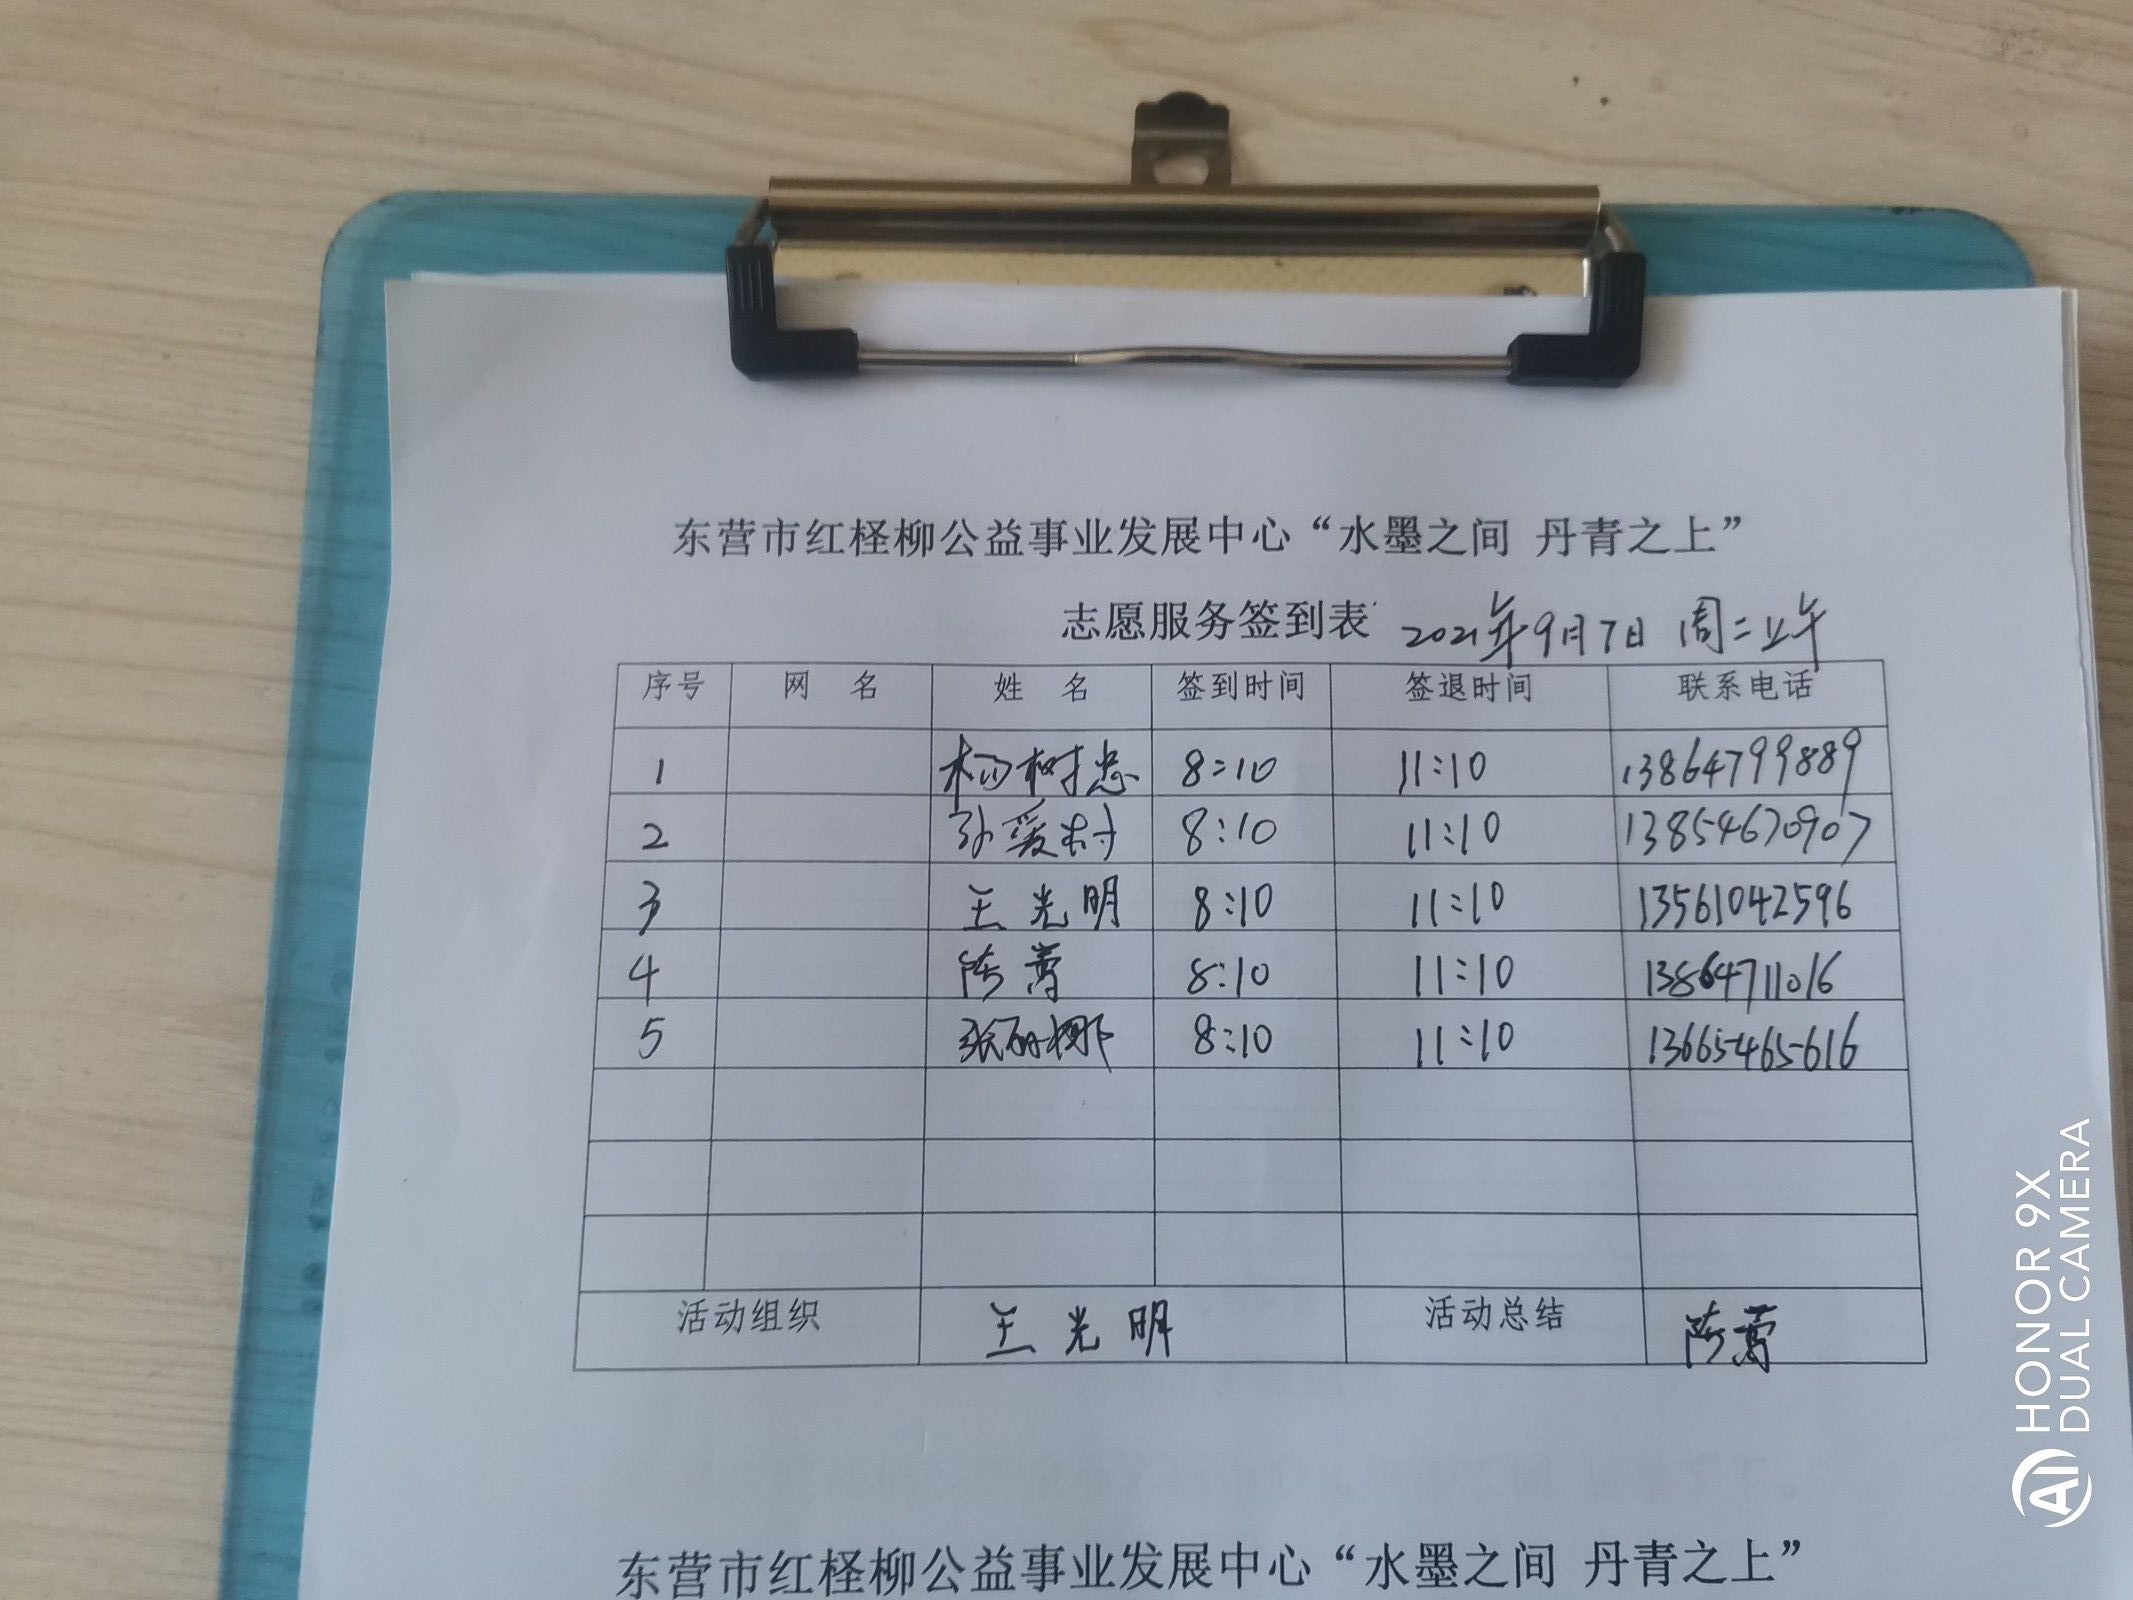 东营市红柽柳公益事业发展中心“水墨之间 丹青之上”
志愿服务签到表 2021年9月7日 周二上午
序号 网 名 姓 名 签到时间 签退时间 联系电话
1 杨树忠 8:10 11:10 13864799889
2 孙爱村 8:10 11:10 13854670907
3 王光明 8:10 11:10 13561042596
4 陈 8:10 11:10 13864711016
5 张丽娜 8:10 11:10 13665465616
活动组织 王光明 活动总结 陈
东营市红柽柳公益事业发展中心“水墨之间 丹青之上”
HONOR 9X
AI DUAL CAMERA